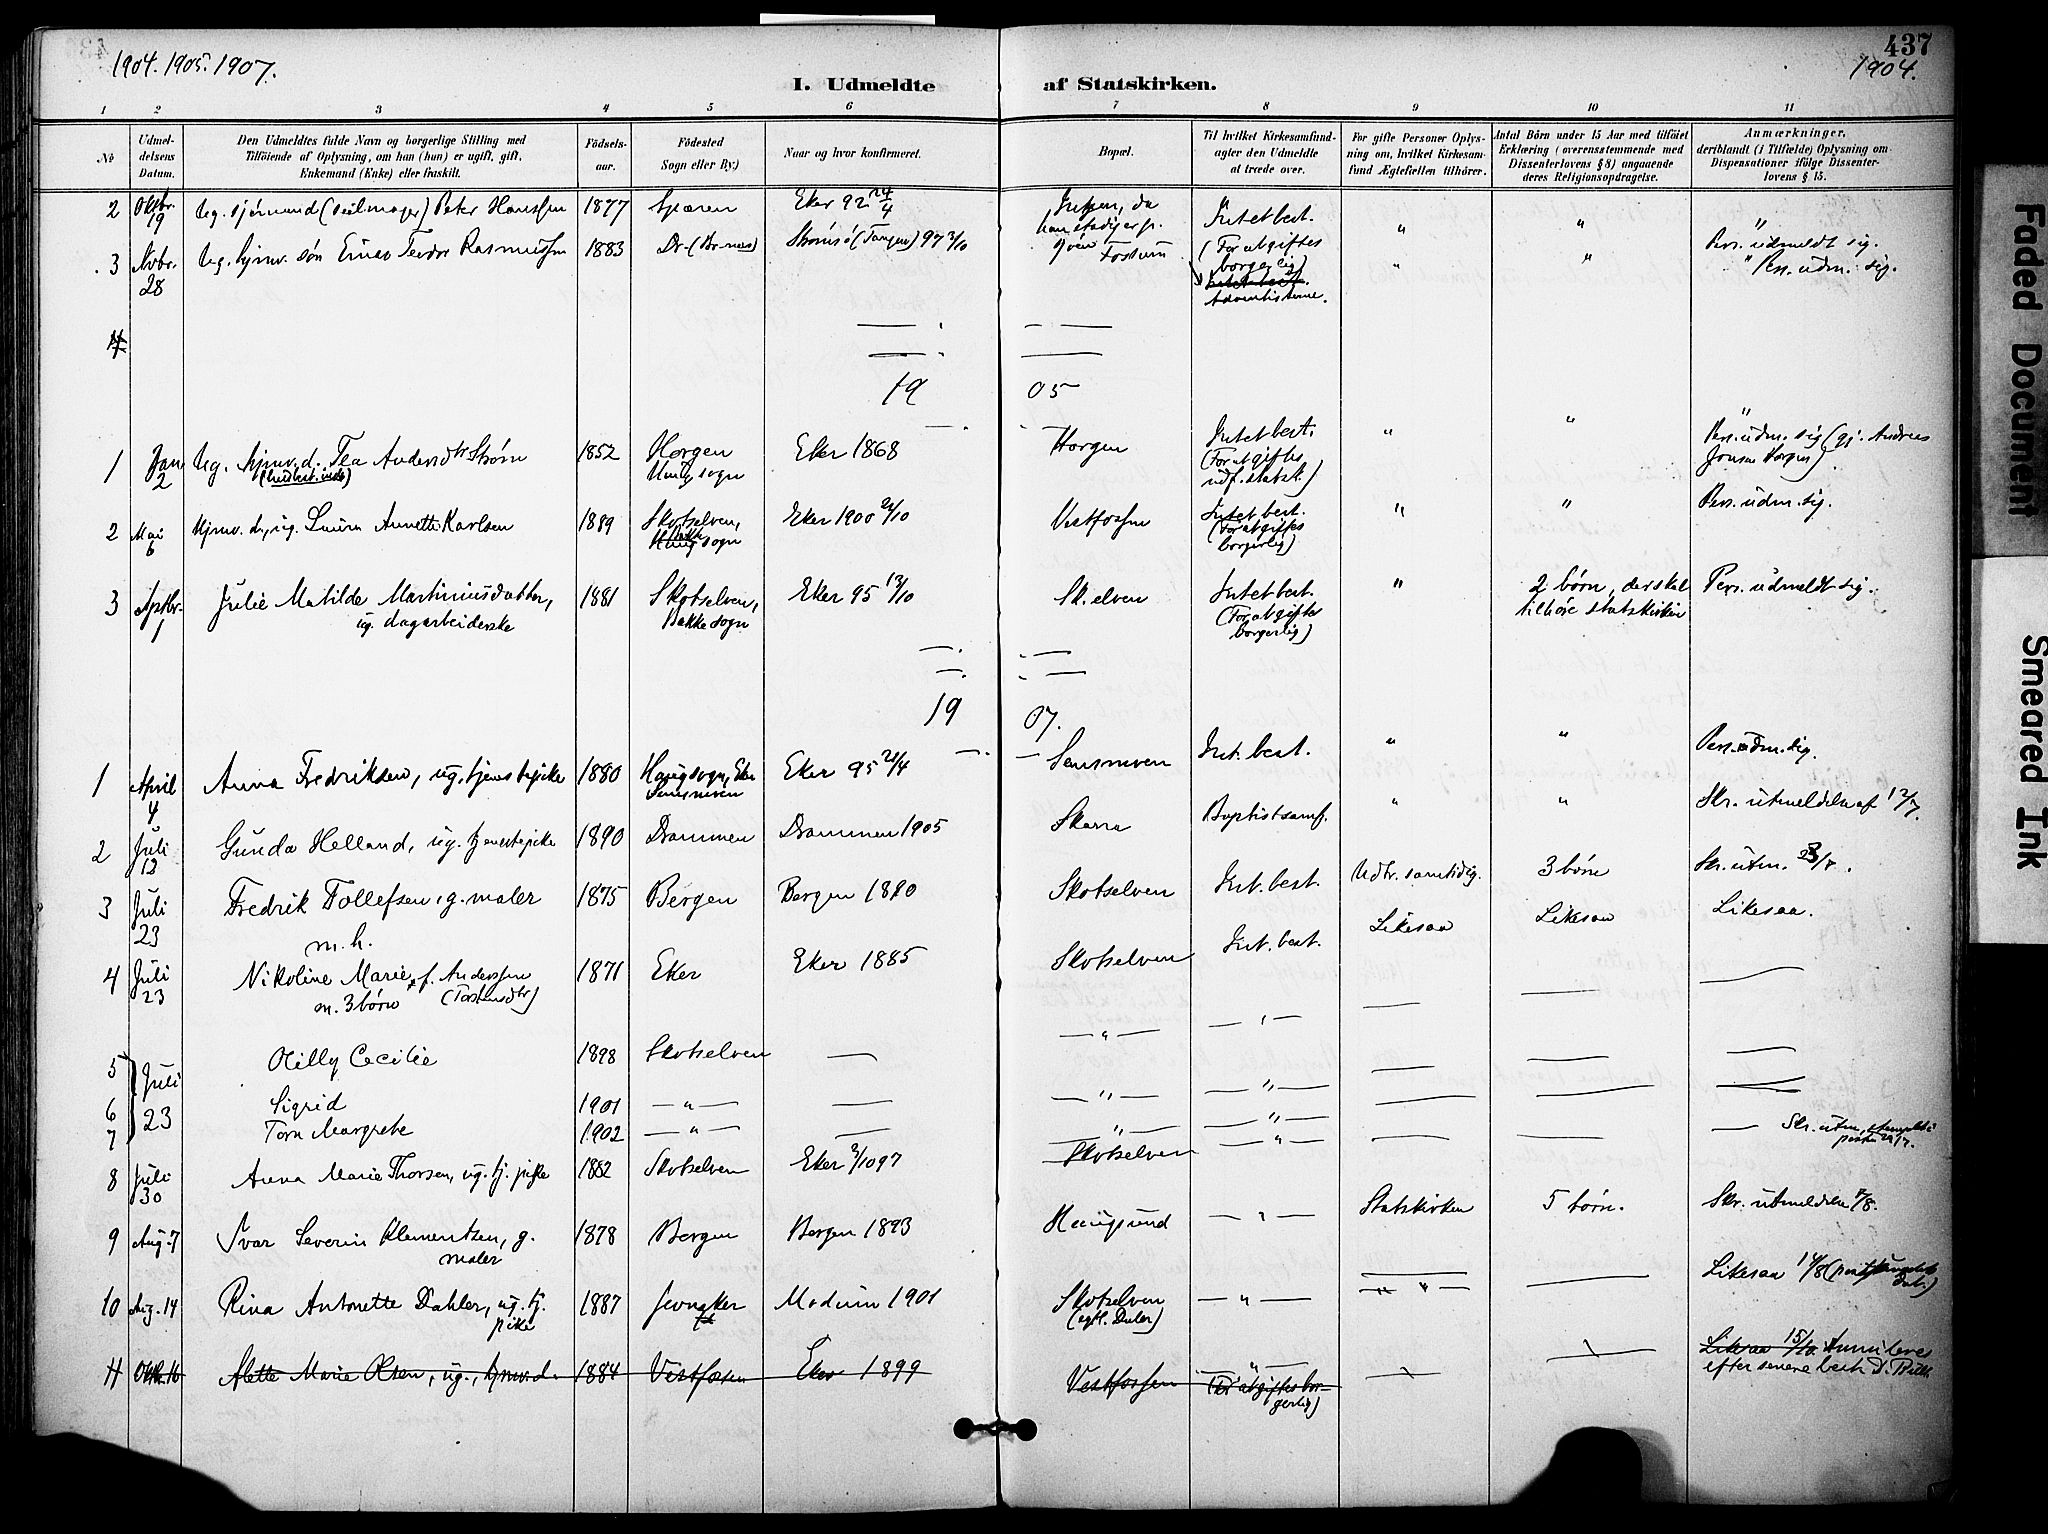 437
1904. 1905. 1907.
1904.
I. Udmeldte af Statskirken.
1 2 3 4 5 6 7 8 9 10 11
No
Udmel-
delsens
Datum.
Den Udmeldtes fulde Navn og borgerlige Stilling med
Tilföiende af Oplysning, om han (hun) er ugift, gift,
Enkemand (Enke) eller fraskilt.
Födsels-
aar.
Födested
Sogn eller By.)
Naar og hvor konfirmeret.
Bopæl.
Til hvilket Kirkesamfund-
agter den Udmeldte
at træde over.
For gifte Personer Oplys-
ning om, hvilket Kirkesam-
fund Ægtefællen tilhörer.
Antal Börn under 15 Aar med tilföiet
Erklæring (overensstemmende med
Dissenterlovens § 8) angaaende
deres Religionsopdragelse.
Anmærkninger,
deriblandt (i Tilfælde) Oplysning om
Dispensationer ifölge Dissenter-
lovens § 15.
2 Oktbr. 19 Ug. sjømand (seilmager) Peter Hanssen 1877 Eker 92 24/4
Intet best.
(For at giftes
borgerlig)
" " "
Pers. udmeldt sig.
3 Novbr. 28 Ug. søn Einar Teodor Rasmussen 1883 Strømsø (Tangen) 97 3/10 Fossum
Intet best.
Adventisterne.
" " " Pers. udm. sig.
4
1905
1 Jan 2 Ug. hjmv. d. Tea Andersdtr Strøm 1852 Horgen
Haug sogn
Eker 1868 Horgen
Intet best.
(For at giftes
udf. statsk.)
" " "
Pers. udm. sig (gj. Andreas
Jonsen Horgen)
2 Mai 6 Hjmv. d., ug. Laura Annette Karlsen 1889 Skotselven,
Bakke
Haug sogn
Eker 1900 Vestfossen
Intet best.
(For at giftes
borgerlig)
" " Pers. udm. sig.
3 Septbr. 1 Julie Matilde Martiniusdatter,
ug. dagarbeiderske
1881 Skotselven,
Bakke sogn
Eker 95 13/10 Sk.elven
Intet best.
(For at giftes
borgerlig)
" 2 børn, der skal
tilhøre statskirken
Pers. udmeldt sig.
1907.
1 April 4 Anna Fredriksen, ug. tjenestepike 1880 Haug sogn, Eker
Eker 95 21/4 Int. best. " " Pers. udm. sig.
2 Juli 12 Gunda Helland, ug. tjenestepike 1890 Drammen Drammen 1905 Skarra Baptistsamf. " " Skr. utmeldelse af 12/7.
3 Juli 23 Fredrik Tollefsen, g. maler
m. h.
1875 Bergen Bergen 1890 Skotselven Int. best. Udtr. samtidig. 3 børn Skr. utm. 23/7.
4 Juli 23 Nikoline Marie, f. Anderssen
m. 3 børn (Torstensdtr)
1871 Eker Eker 1885 Skotselven Int. best. Likesaa Likesaa Likesaa.
5 Juli 23 Olilly Cecilie 1898 Skotselven — — " — — " —
6 Sigrid 1901 — " — — — " — — " —
7 Tora Margrete 1902 — " — — — " — — " —
8 Juli 30 Anna Marie Thorsen, ug. tj. pike 1882 Skotselven Eker 3/10 97 Skotselven — " — — — Skr. utm., stemplet i
posten 29/7.
9 Aug. 7 Ivar Severin Klementsen, g.
maler
1878 Bergen Bergen 1893 Haugsund — " — Statskirken 5 børn. Skr. utmeldelse 7/8.
10 Aug. 14 Rina Antonette Dahler, ug. tj.
pike
1887 Modum 1901 Skotselven
(egtl. Daler)
— " — " " — Likesaa 14/8
11 Oktb. 16 Alette Marie Olsen, ug., hjmv. d. 1884 Vestfossen Eker 1899 Vestfossen "
(For at giftes bor-
gerlig)
Likesaa 15/10. Annulleres
efter senere besk.
Faded Document
Smeared Ink